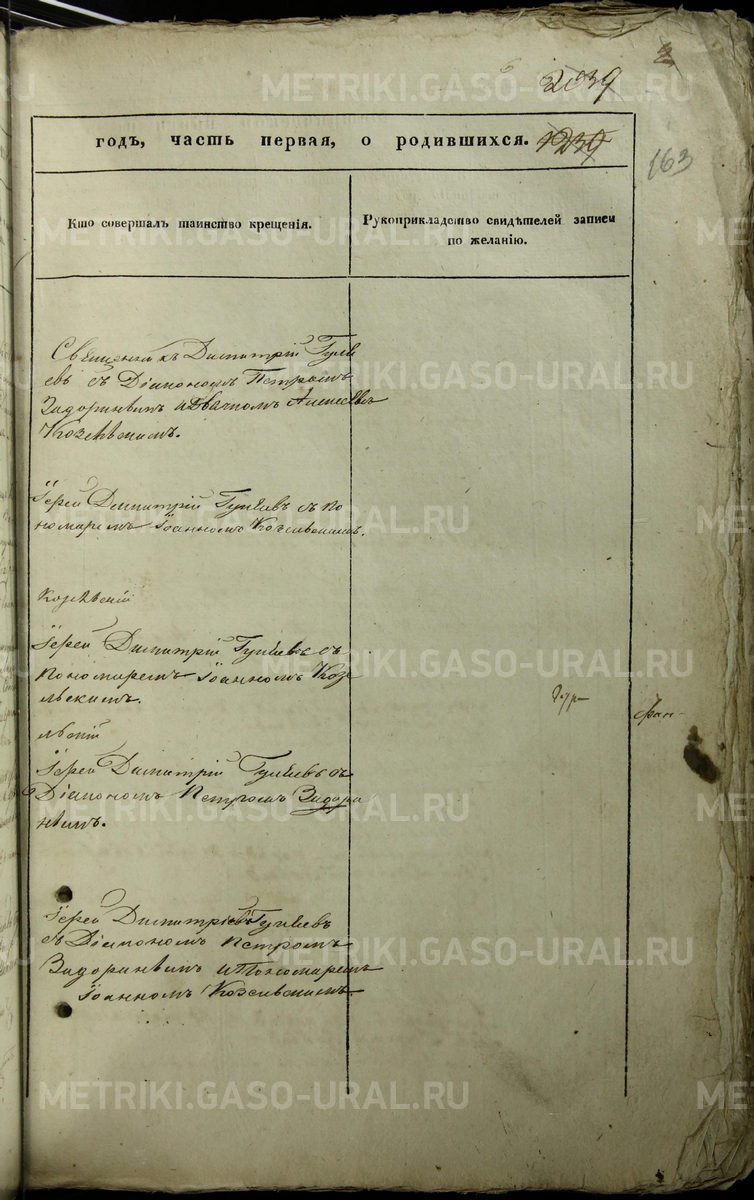 2039
годъ, часть первая, о родившихся. 1239
163
Кто совершалъ таинство крещенія.
Рукоприкладство свидѣтелей записи
по желанію.
Священникъ Димитрій Гуля
евъ съ Діакономъ Петромъ
Задоринымъ Алексѣемъ
Козельскимъ.
Іерей Димитрій Гуляевъ съ По
номаремъ Іоанномъ Козельскимъ.
Козельскій
Іерей Димитрій Гуляевъ съ
Пономаремъ Іоанномъ Козе
льскимъ.
льскій
Іерей Димитрій Гуляевъ съ
Діакономъ Петромъ Задори
нымъ.
Іерей Димитріевъ Гуляевъ
съ Діакономъ Петромъ
Задоринымъ и Пономаремъ
Іоанномъ Козельскимъ.
METRIKI.GASO-URAL.RU